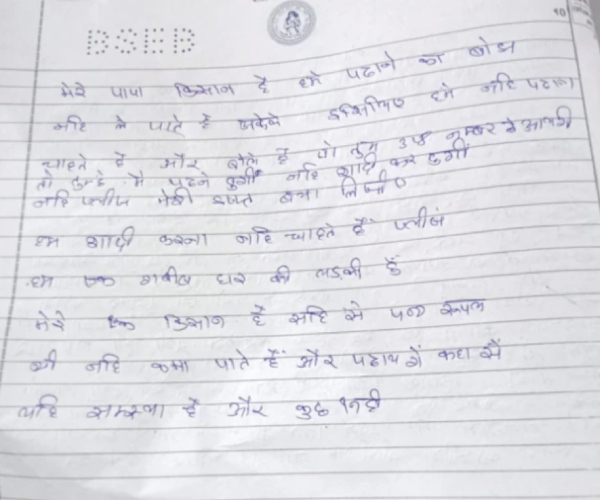 BSEB
मेरे पापा किसान है हमे पढाने का बोझ
नहि ले पाते है इसिलिए हमे नहि पढाना
चाहते है और बोले है तुम उस नम्बर से आयगी
तो तुम्हे मै पढने दुगाँ नहि शादी कर दुगाँ
नहि प्लीज मेरी इजत बचा लिजीए
हम शादी करना नहि चाहते हैं प्लीज
हम एक गरीब घर की लडकी हैं
मेरे एक किसान हैं सहि से पन्द्र रूपल
भी नहि कमा पाते हैं और पढायगें कहा सें
यहि समस्या हैं और कुछ नही